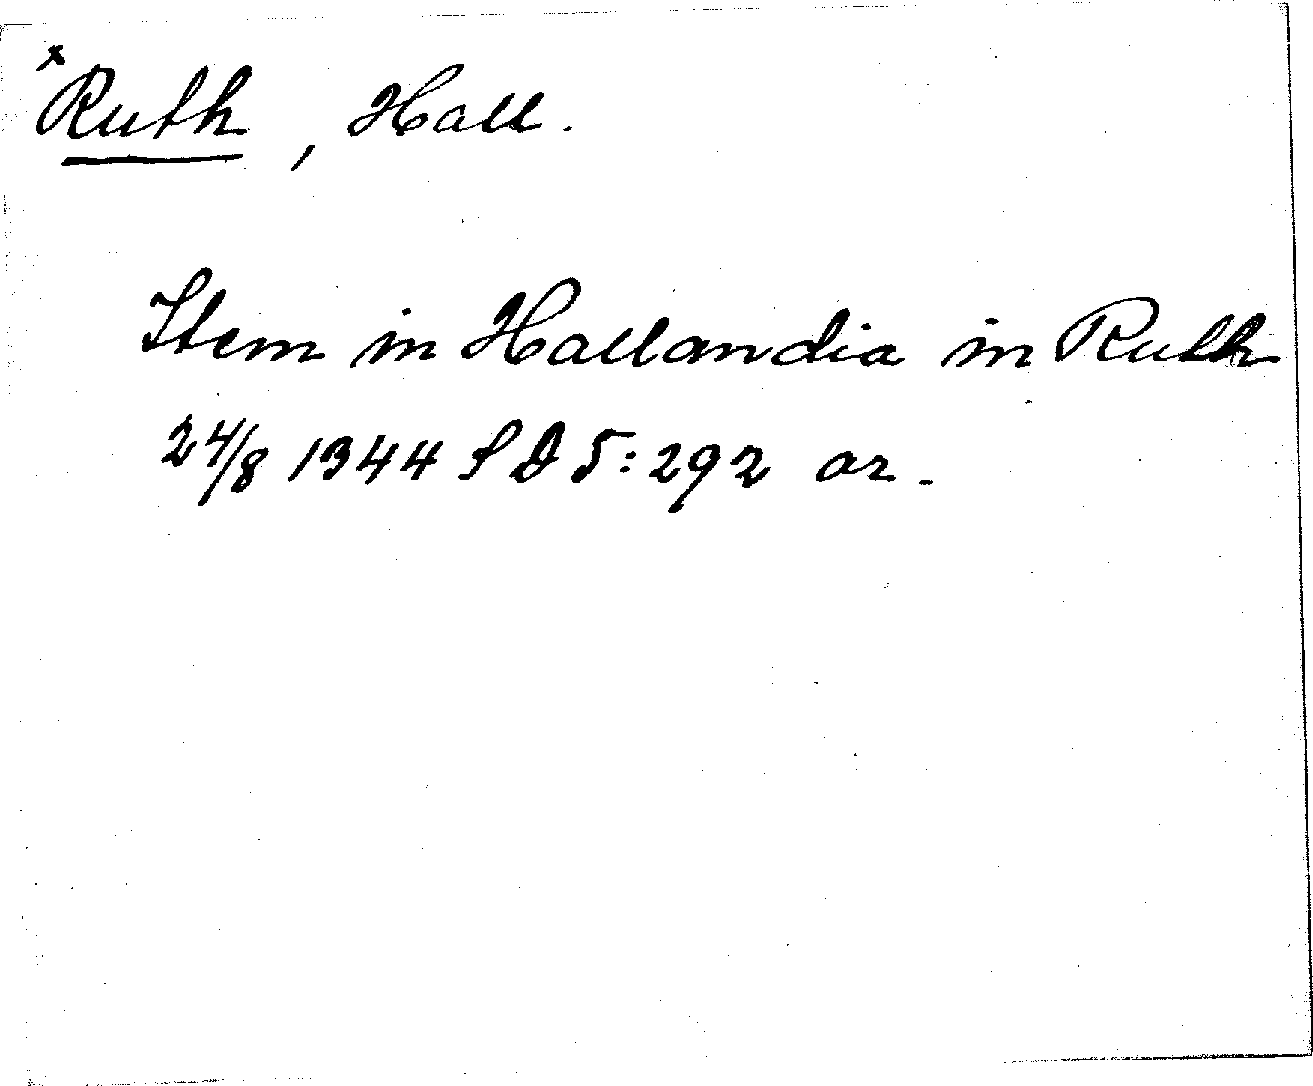 *Ruth, Hall.
Item in Hallandia in Ruth
24/8 1344 SD 5:292 or.